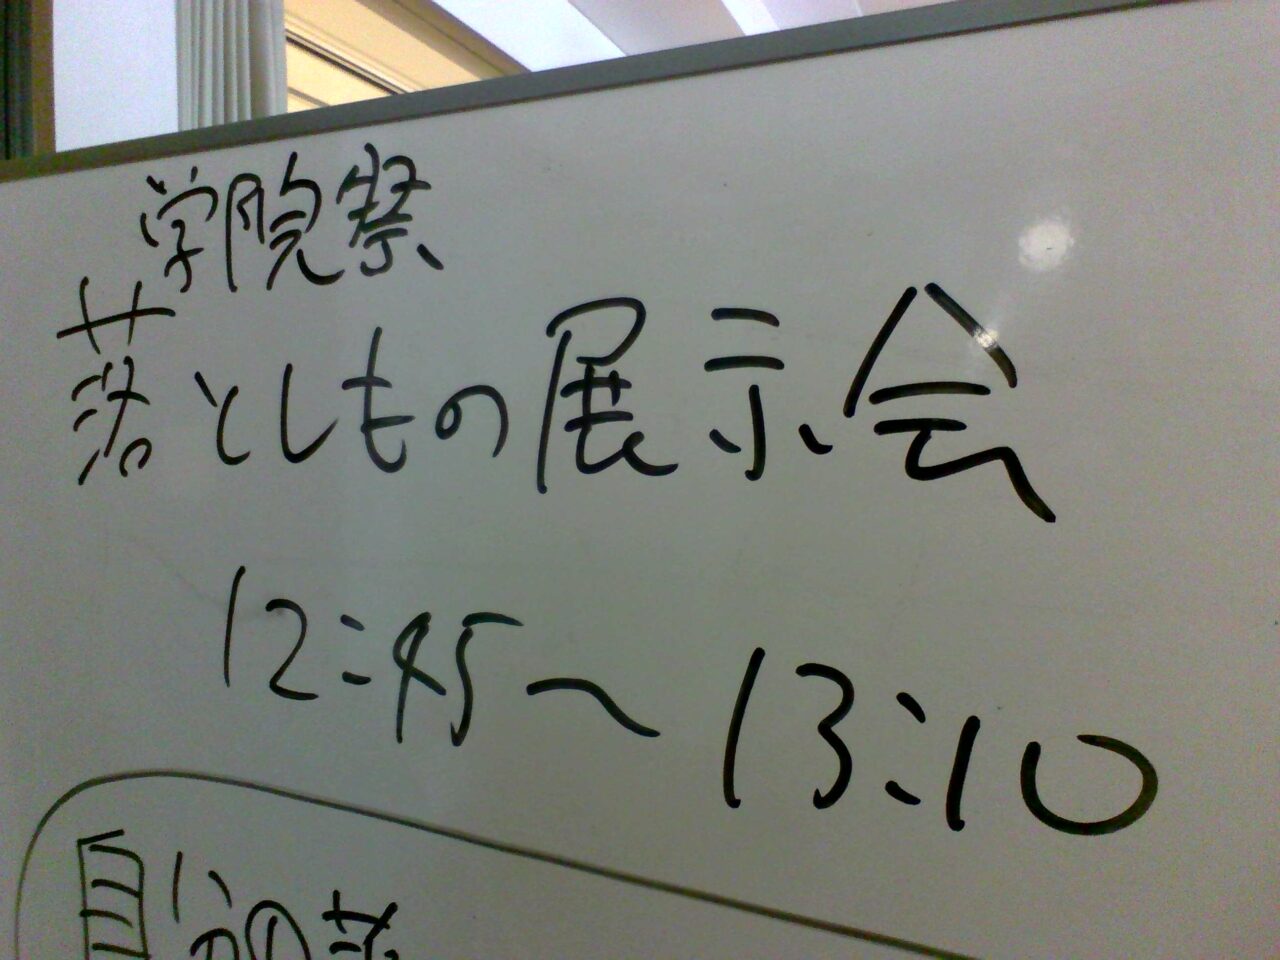 学院祭
落としもの展示会
12:45~13:10
自分の落